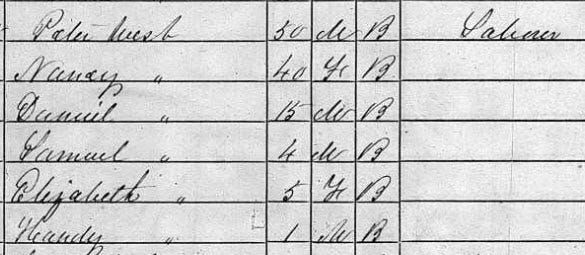 Peter West 50 M B Laborer
Nancy " 40 F B
Daniel " 15 M B
Samuel " 4 M B
Elizabeth " 5 F B
Handy " 1 M B